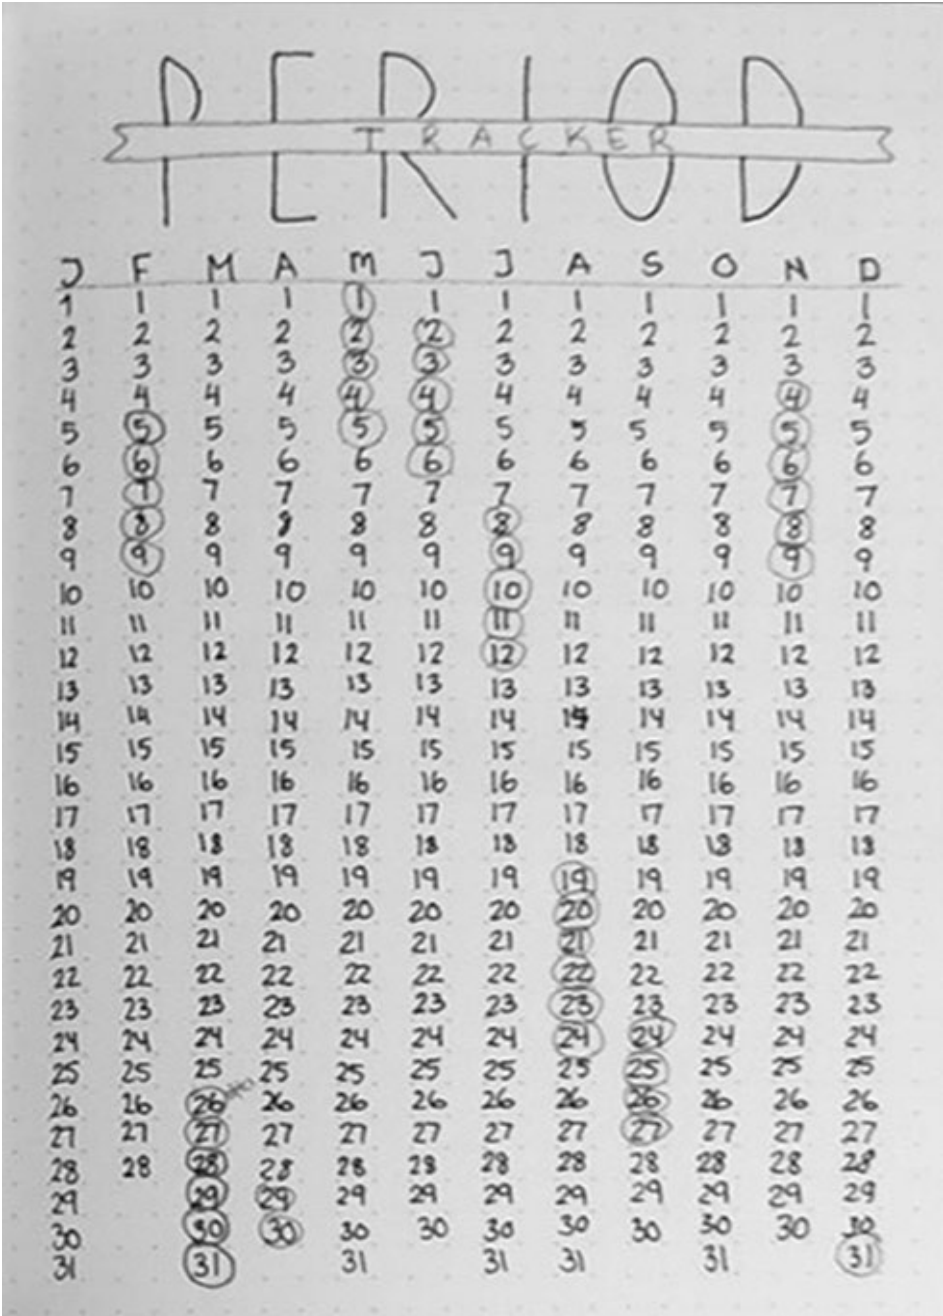 PERIOD
TRACKER
J F M A M J J A S O N D
1 1 1 1 1 1 1 1 1 1 1 1
2 2 2 2 2 2 2 2 2 2 2 2
3 3 3 3 3 3 3 3 3 3 3 3
4 4 4 4 4 4 4 4 4 4 4 4
5 5 5 5 5 5 5 5 5 5 5 5
6 6 6 6 6 6 6 6 6 6 6 6
7 7 7 7 7 7 7 7 7 7 7 7
8 8 8 8 8 8 8 8 8 8 8 8
9 9 9 9 9 9 9 9 9 9 9 9
10 10 10 10 10 10 10 10 10 10 10 10
11 11 11 11 11 11 11 11 11 11 11 11
12 12 12 12 12 12 12 12 12 12 12 12
13 13 13 13 13 13 13 13 13 13 13 13
14 14 14 14 14 14 14 14 14 14 14 14
15 15 15 15 15 15 15 15 15 15 15 15
16 16 16 16 16 16 16 16 16 16 16 16
17 17 17 17 17 17 17 17 17 17 17 17
18 18 18 18 18 18 18 18 18 18 18 18
19 19 19 19 19 19 19 19 19 19 19 19
20 20 20 20 20 20 20 20 20 20 20 20
21 21 21 21 21 21 21 21 21 21 21 21
22 22 22 22 22 22 22 22 22 22 22 22
23 23 23 23 23 23 23 23 23 23 23 23
24 24 24 24 24 24 24 24 24 24 24 24
25 25 25 25 25 25 25 25 25 25 25 25
26 26 26 26 26 26 26 26 26 26 26 26
27 27 27 27 27 27 27 27 27 27 27 27
28 28 28 28 28 28 28 28 28 28 28 28
29 29 29 29 29 29 29 29 29 29 29
30 30 30 30 30 30 30 30 30 30 30
31 31 31 31 31 31 31